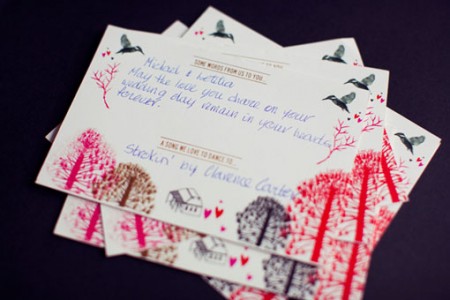 SOME WORDS FROM US TO YOU
Michael &
May the love you share on your
wedding day remain in your hearts
forever.
A SONG WE LOVE TO DANCE TO...
Strokin' by Clarence Carter